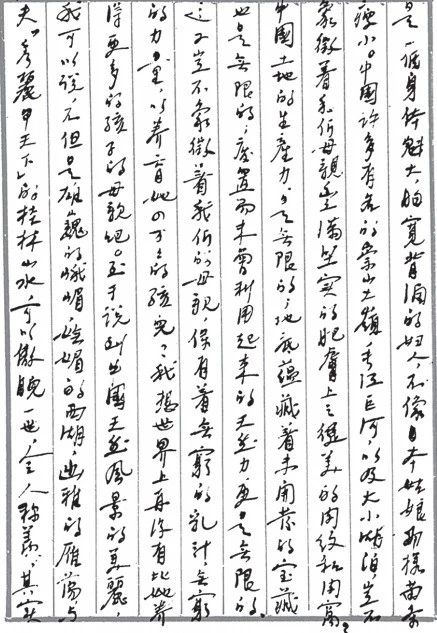 是一個身体魁大,胸寬背濶的妇人,不像日本姑娘那樣苗条
瘦小。中国許多有名的崇山大嶺,長江巨河,以及大小湖泊,豈不
象徵着我们母親豐滿坚实的肥膚上之健美的肉纹和肉窝?
中國土地的生產力是無限的;地底蕴藏着未開發的宝藏
也是無限的;废置而未曾利用起来的天然力,更是無限的,
這又豈不象徵着我们的母親,保有着無窮的乳汁,無窮
的力量,以养育她四万万的孩兒?我想世界上再没有比她养
得更多的孩子的母親吧。至于说到中國天然風景的美麗,
我可以说,不但是雄巍的峨嵋,嫵媚的西湖,幽雅的雁蕩,与
夫「秀麗甲天下」的桂林山水,可以傲睨一世,令人称羡;其实